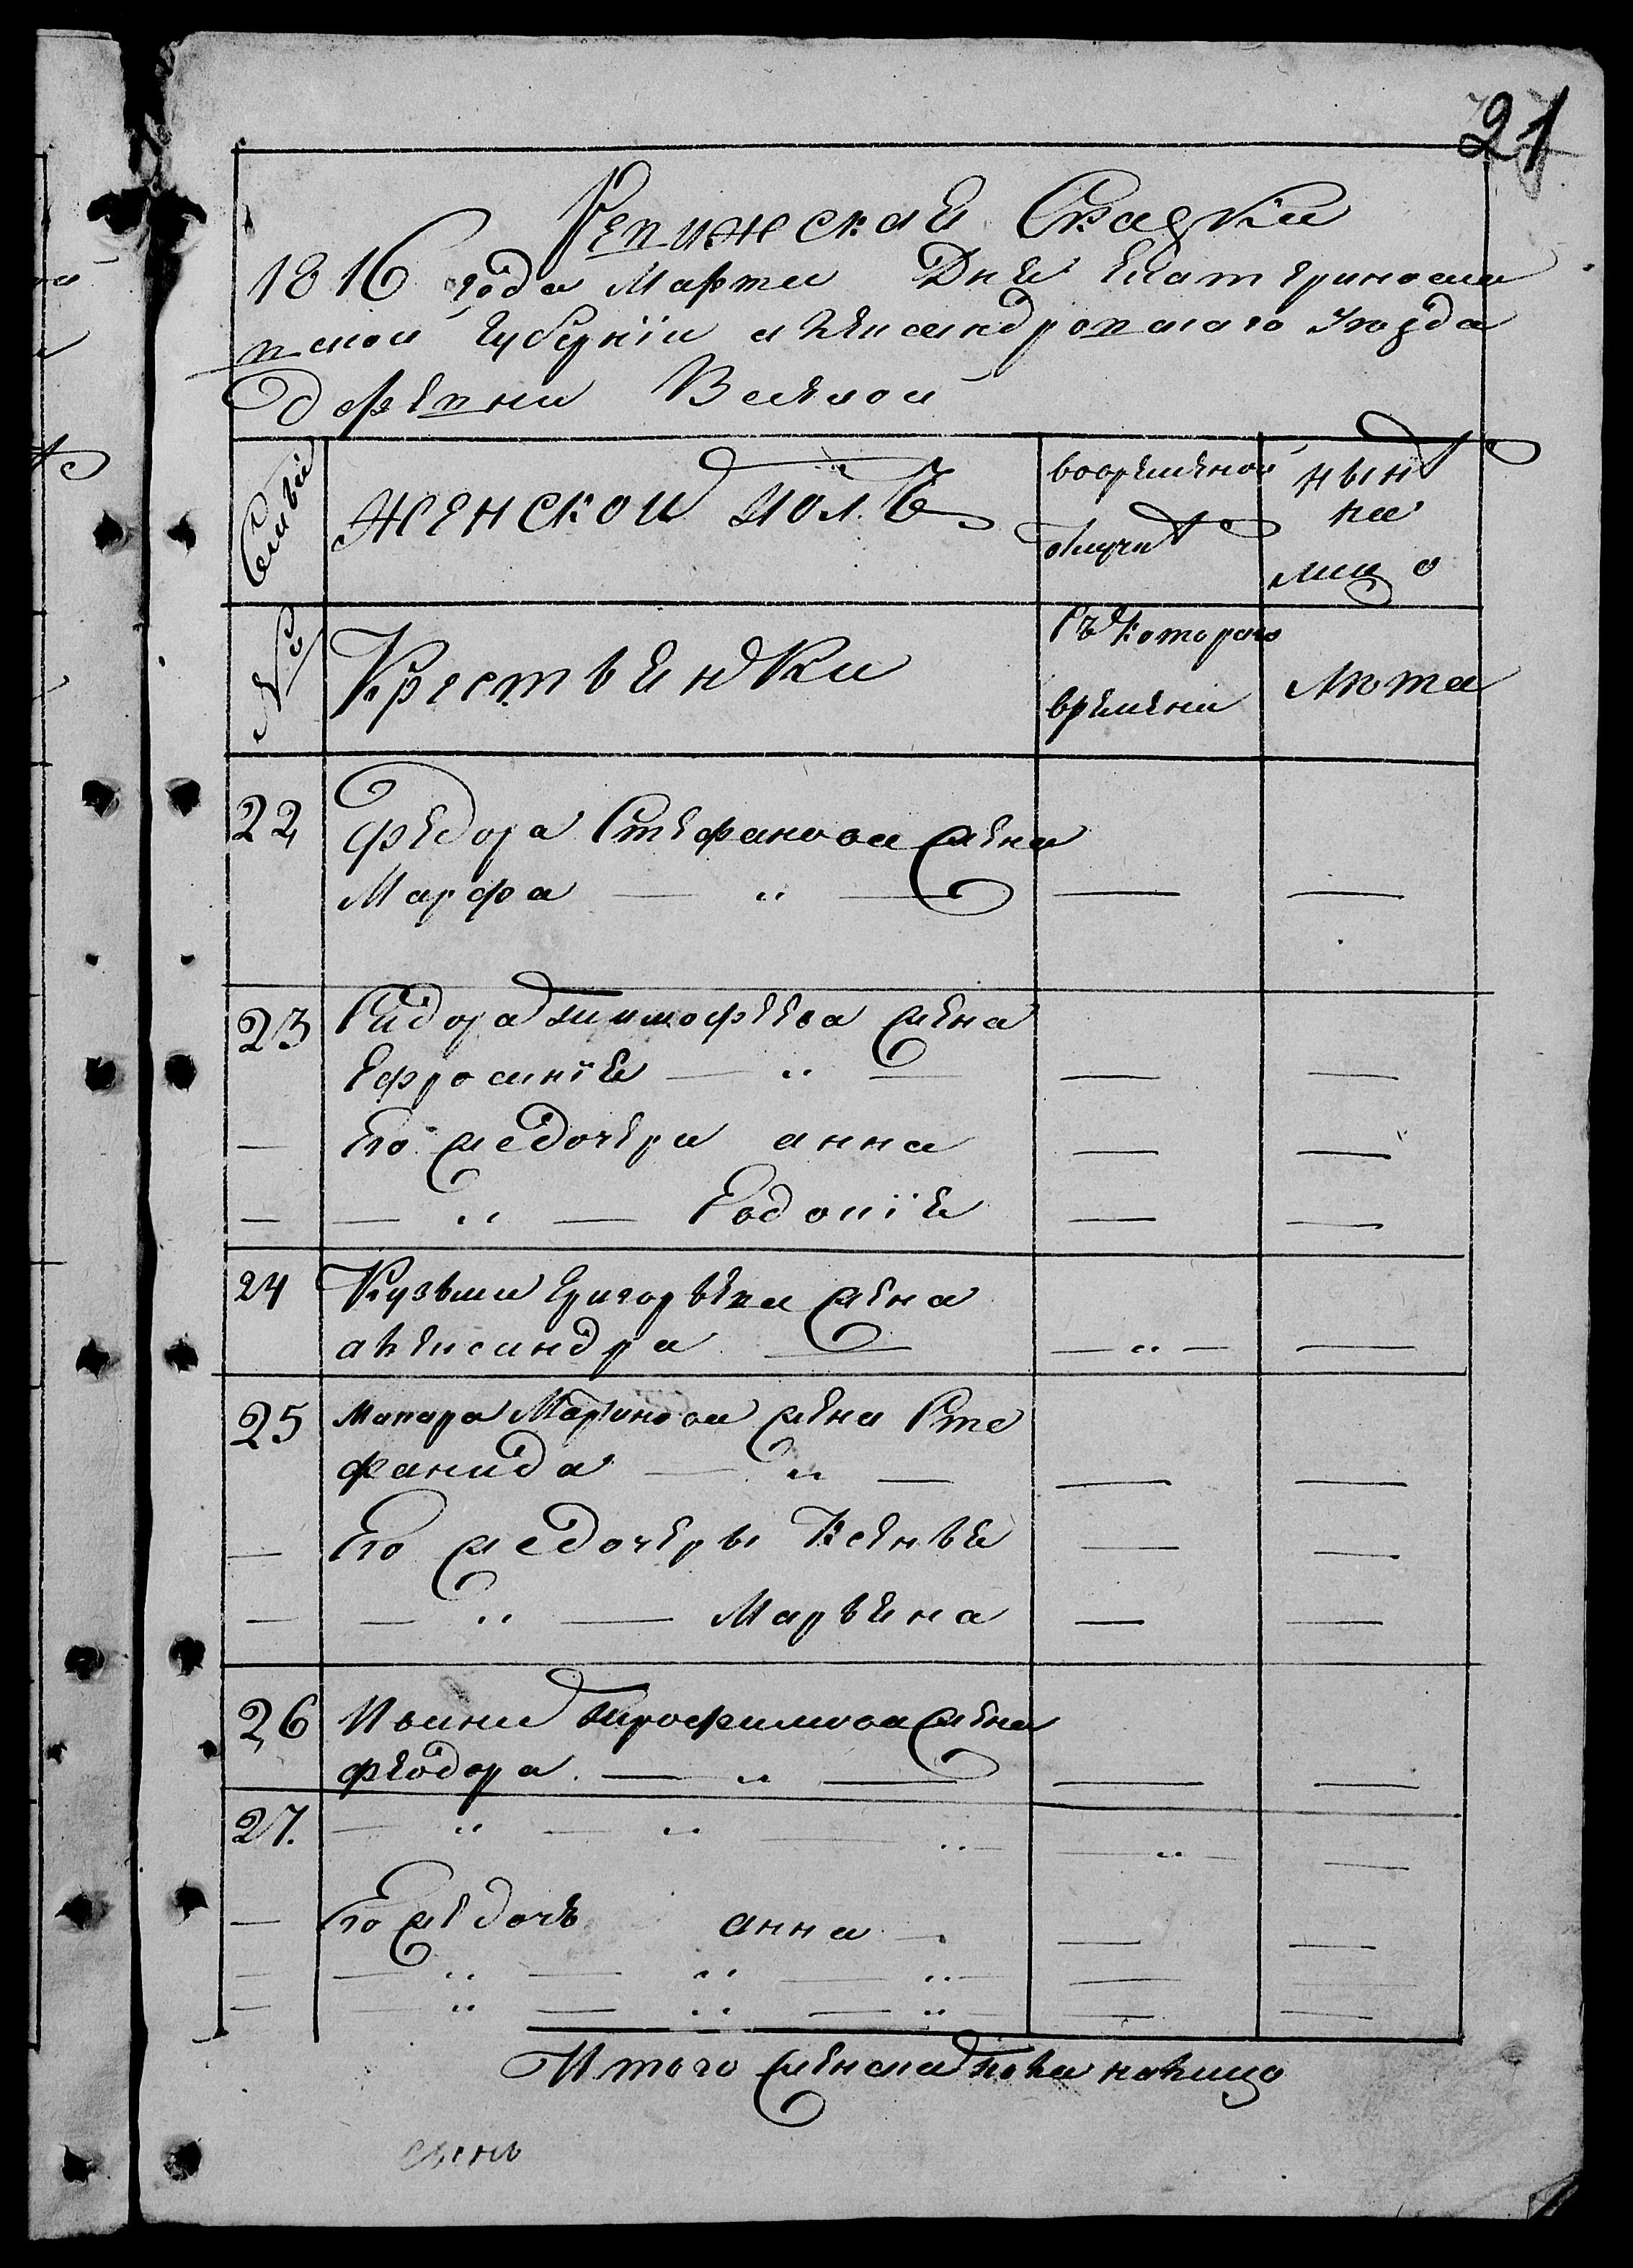 21
Ревижская Сказка
1816 года Марта Дня Екатериносла
вской Губернїи Александровскаго уѣзда
деревни Белѧкой
Семьи
женской полъ
вовремѧнной
отлучкѣ
нынѣ
на
лицо
№
Крестьянки
Съ котораго
времяни
Лѣта
22
Федора Стефанова жена
Марфа — " —
23
Сидора тимофеева жена
Ефросинїя — " —
Его же дочери анна
— " — Евдокїя
24
Кузьмы Григорьева жена
александра —
25
Макара Маркинова жена Сте
фанида — " —
Его же дочеры Ксенья
— " — Марьяна
26
Ивана трофимова жена
феодора — " —
27. — " — " — "
Его же дочь анна
— " — " — "
— " — " — "
Итого женска пола налицо